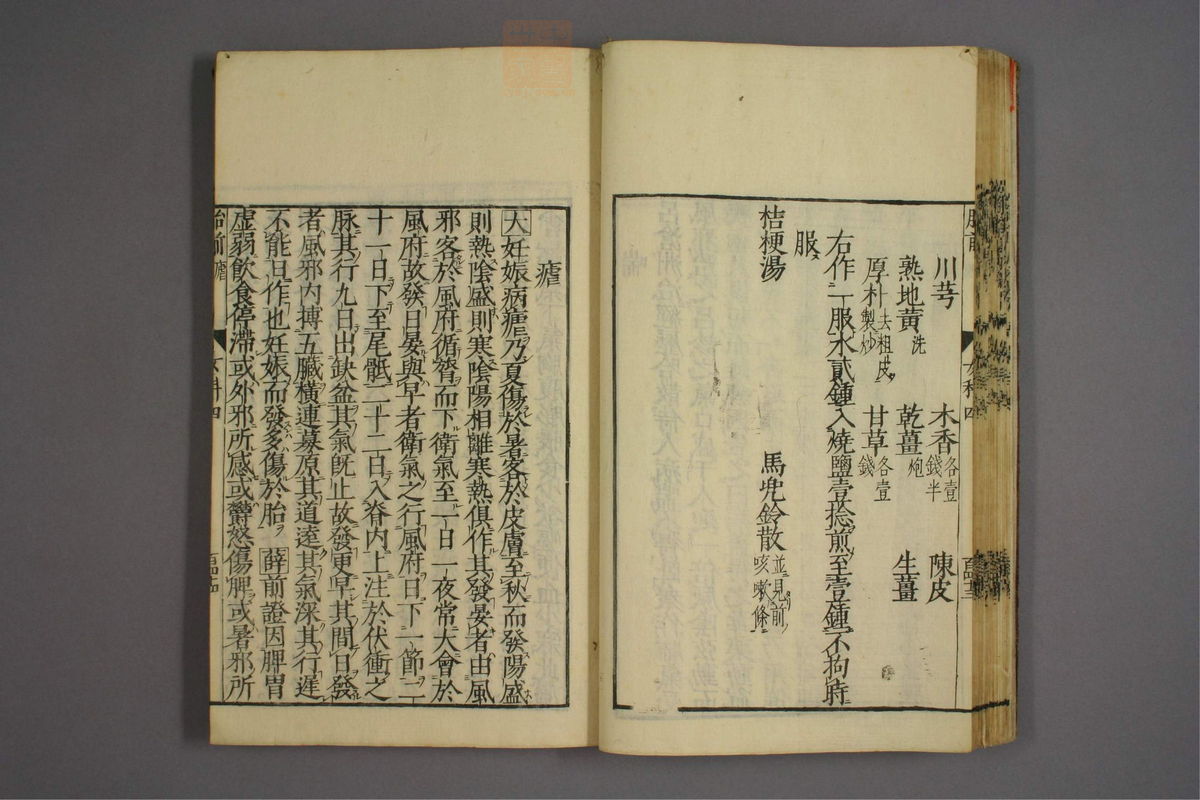 川芎 木香 各壹錢半 陳皮
熟地黃 洗 乾薑 炮 生薑
厚朴 去粗皮製炒 甘草 各壹錢
右作一服水貳鍾入燒鹽壹捻煎至壹鍾不拘時
服
桔梗湯 馬兜鈴散 並見前咳嗽條
瘧
大 妊娠病瘧乃夏傷於暑客於皮膚至秋而發陽盛
則熱陰盛則寒陰陽相離寒熱俱作其發晏者由風
邪客於風府循膂而下衛氣至一日一夜常大會於
風府故發日晏與早者衛氣之行風府日下一節二
十一日下至尾骶二十二日入脊內上注於伏衝之
脉其行九日出缺盆其氣既止故發更早其間日發
者風邪內搏五臟橫連募原其道遠其氣深其行遲
不能日作也妊娠而發多傷於胎 薛 前證因脾胃
虛弱飲食停滯或外邪所感或鬱怒傷脾或暑邪所
胎前 瘧 女科四